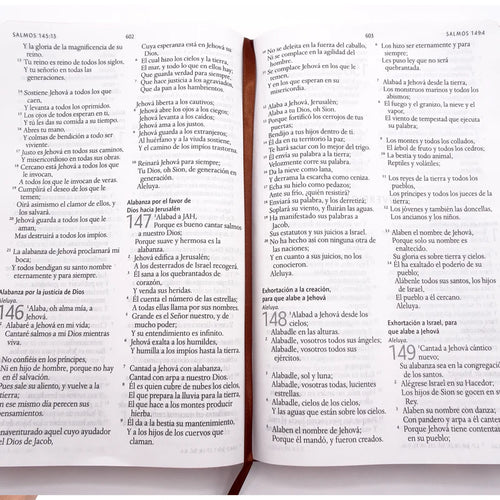 SALMOS 145:13
602
Y la gloria de la magnificencia de su
reino.
13 Tu reino es reino de todos los siglos,
Y tu señorío en todas las
generaciones.
14 Sostiene Jehová a todos los que
caen,
Y levanta a todos los oprimidos.
15 Los ojos de todos esperan en ti,
Y tú les das su comida a su tiempo.
16 Abres tu mano,
Y colmas de bendición a todo ser
viviente.
17 Justo es Jehová en todos sus caminos,
Y misericordioso en todas sus obras.
18 Cercano está Jehová a todos los que
le invocan,
A todos los que le invocan de veras.
19 Cumplirá el deseo de los que le
temen;
Oirá asimismo el clamor de ellos, y
los salvará.
20 Jehová guarda a todos los que le
aman,
Mas destruirá a todos los impíos.
21 La alabanza de Jehová proclamará mi
boca;
Y todos bendigan su santo nombre
eternamente y para siempre.
Alabanza por la justicia de Dios
Aleluya.
146 1 Alaba, oh alma mía, a
Jehová.
Alabaré a Jehová en mi vida;
Cantaré salmos a mi Dios mientras
viva.
No confiéis en los príncipes,
Ni en hijo de hombre, porque no hay
en él salvación.
Pues sale su aliento, y vuelve a la
tierra;
en ese mismo día perecen sus
pensamientos.
Bienaventurado aquel cuyo ayudador
el Dios de Jacob,
Cuya esperanza está en Jehová su
Dios,
6 El cual hizo los cielos y la tierra,
El mar, y todo lo que en ellos hay;
Que guarda verdad para siempre,
7 Que hace justicia a los agraviados,
Que da pan a los hambrientos.
Jehová liberta a los cautivos;
8 Jehová abre los ojos a los ciegos;
Jehová levanta a los caídos;
Jehová ama a los justos.
9 Jehová guarda a los extranjeros;
Al huérfano y a la viuda sostiene,
Y el camino de los impíos trastorna.
10 Reinará Jehová para siempre;
Tu Dios, oh Sion, de generación
en generación.
Aleluya.
Alabanza por el favor de
Dios hacia Jerusalén
147 1 Alabad a JAH,
Porque es bueno cantar salmos
a nuestro Dios;
Porque suave y hermosa es la
alabanza.
2 Jehová edifica a Jerusalén;
A los desterrados de Israel recogerá.
3 Él sana a los quebrantados de
corazón,
Y venda sus heridas.
4 Él cuenta el número de las estrellas;
A todas ellas llama por sus nombres.
5 Grande es el Señor nuestro, y de
mucho poder;
Y su entendimiento es infinito.
6 Jehová exalta a los humildes,
Y humilla a los impíos hasta la tierra.
7 Cantad a Jehová con alabanza,
Cantad con arpa a nuestro Dios.
8 Él es quien cubre de nubes los cielos,
El que prepara la lluvia para la tierra,
El que hace a los montes producir
hierba.
9 Él da a la bestia su mantenimiento,
Y a los hijos de los cuervos que
claman.
603
SALMOS 149:4
10 No se deleita en la fuerza del caballo,
Ni se complace en la agilidad del
hombre.
11 Se complace Jehová en los que le
temen,
Y en los que esperan en su
misericordia.
12 Alaba a Jehová, Jerusalén;
Alaba a tu Dios, oh Sion.
13 Porque fortificó los cerrojos de tus
puertas;
Bendijo a tus hijos dentro de ti.
14 Él da en tu territorio la paz;
Te hará saciar con lo mejor del trigo.
15 Él envía su palabra a la tierra;
Velozmente corre su palabra.
16 Da la nieve como lana,
Y derrama la escarcha como ceniza.
17 Echa su hielo como pedazos;
Ante su frío, ¿quién resistirá?
18 Enviará su palabra, y los derretirá;
Soplará su viento, y fluirán las aguas.
19 Ha manifestado sus palabras a
Jacob,
Sus estatutos y sus juicios a Israel.
20 No ha hecho así con ninguna otra de
las naciones;
Y en cuanto a sus juicios, no los
conocieron.
Aleluya.
Exhortación a la creación,
para que alabe a Jehová
Aleluya.
148 1 Alabad a Jehová desde los
cielos;
Alabadle en las alturas.
2 Alabadle, vosotros todos sus ángeles;
Alabadle, vosotros todos sus
ejércitos.
3 Alabadle, sol y luna;
Alabadle, vosotras todas, lucientes
estrellas.
4 Alabadle, cielos de los cielos,
Y las aguas que están sobre los cielos.
5 Alaben el nombre de Jehová;
Porque él mandó, y fueron creados.
6 Los hizo ser eternamente y para
siempre;
Les puso ley que no será
quebrantada.
7 Alabad a Jehová desde la tierra,
Los monstruos marinos y todos los
abismos;
8 El fuego y el granizo, la nieve y el
vapor,
El viento de tempestad que ejecuta
su palabra;
9 Los montes y todos los collados,
El árbol de fruto y todos los cedros;
10 La bestia y todo animal,
Reptiles y volátiles;
11 Los reyes de la tierra y todos los
pueblos,
Los príncipes y todos los jueces de la
tierra;
12 Los jóvenes y también las doncellas,
Los ancianos y los niños.
13 Alaben el nombre de Jehová,
Porque sólo su nombre es
enaltecido.
Su gloria es sobre tierra y cielos.
14 Él ha exaltado el poderío de su
pueblo;
Alábenle todos sus santos, los hijos
de Israel,
El pueblo a él cercano.
Aleluya.
Exhortación a Israel, para
que alabe a Jehová
Aleluya.
149 1 Cantad a Jehová cántico
nuevo;
Su alabanza sea en la congregación
de los santos.
2 Alégrese Israel en su Hacedor;
Los hijos de Sion se gocen en su
Rey.
3 Alaben su nombre con danza;
Con pandero y arpa a él canten.
4 Porque Jehová tiene contentamiento
en su pueblo;